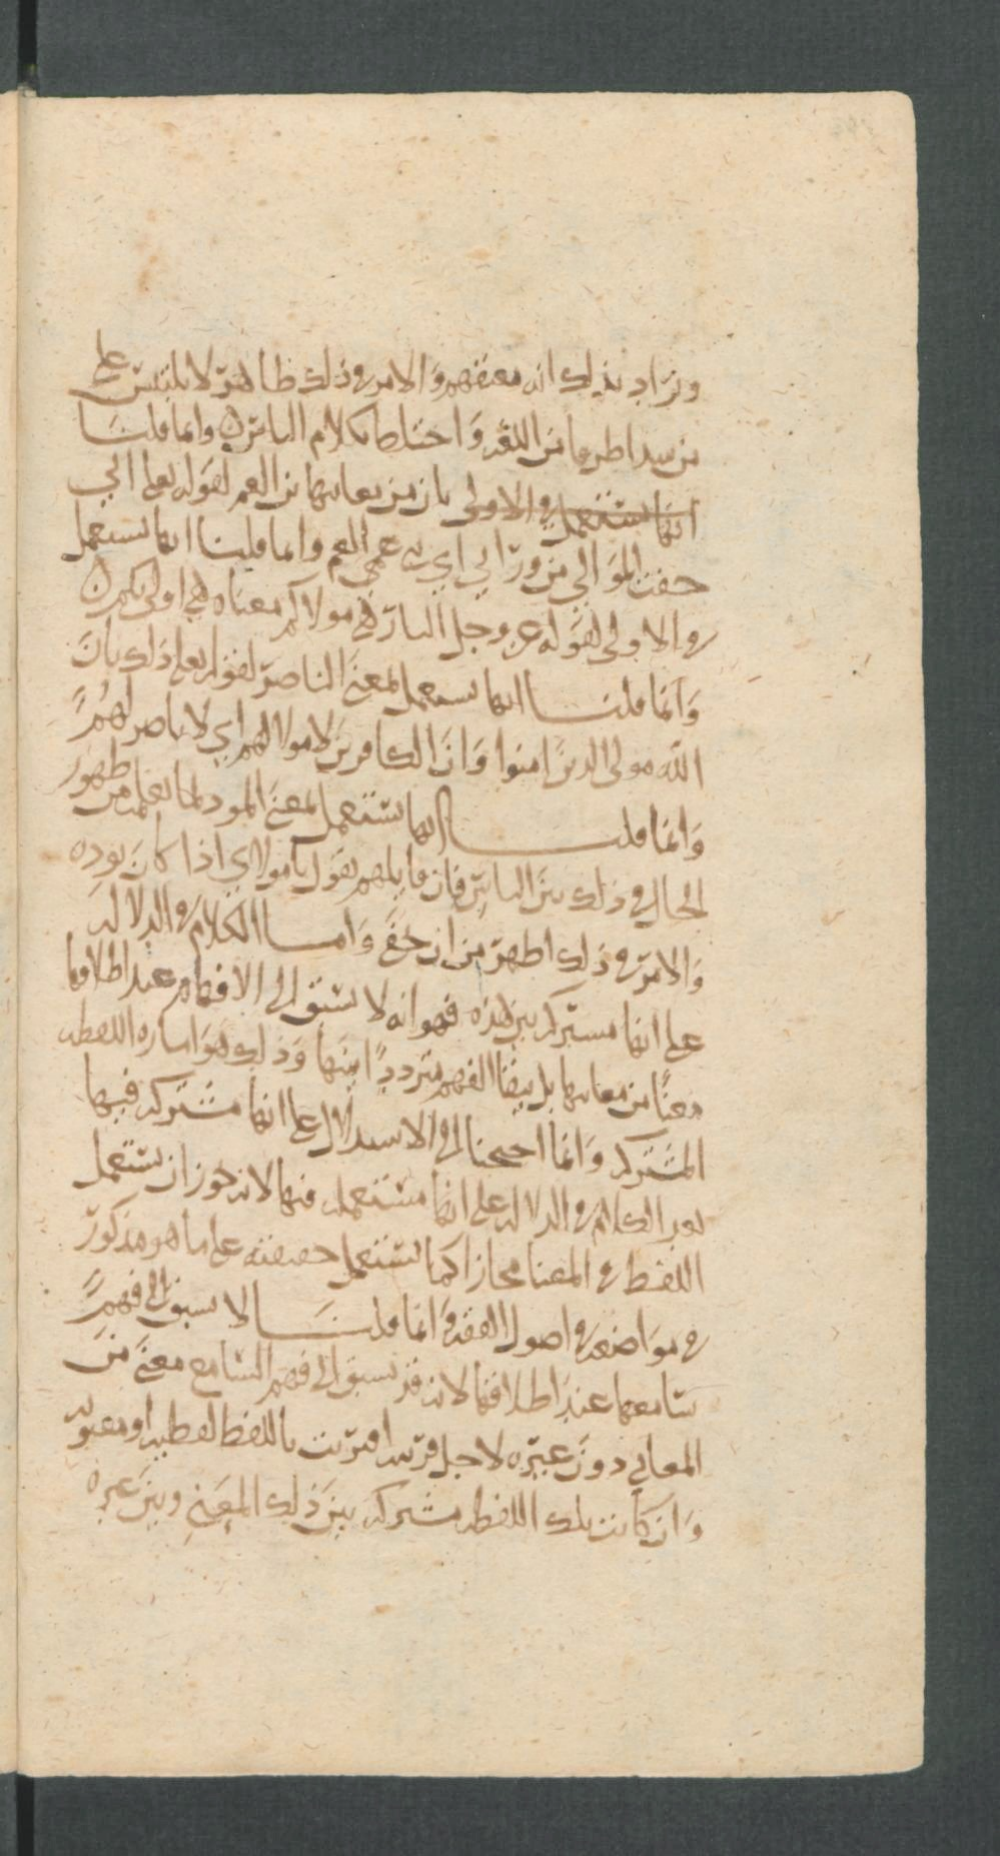 ويراد بذلك انه معتقهم والامر في ذلك ظاهر لا يلتبس على
من شدا طرفا من اللغة واختلط بكلام الناس وانما قلنا
انها تستعمل في الاولى بان من معانيها بن العم لقوله تعلى اني
خفت الموالي من وراي اي بني عمي العم وانما قلنا انها تستعمل
في الاولى لقوله عز وجل النار هي مولاكم معناه هي اولى بكم
وانما قلنا انها تستعمل بمعنى الناصر لقوله تعلى ذلك بان
الله مولى الذين امنوا وان الكافرين لا مولا لهم اي لا ناصر لهم
وانما قلنا انها تستعمل بمعنى المود لما نعلمه من ظهور
الحال في ذلك بين الناس فان قايلهم يقول يا مولاي اذا كان يوده
والامر في ذلك اظهر من ان يخفى واما الكلام في الدلالة
على انها مشتركة بين هذه فهو انه لا يسبق الى الافهام عند اطلاقها
معنا من معانيها بل يبقا الفهم مترددا بينها وذلك هو امارة اللفظه
المشتركه وانما احتجنا الى الاستدلال على انها مشتركه فيها
بعد الكلام في الدلالة على انها مستعمله فيها لانه يجوز ان يستعمل
اللفظ في المعنا مجازا كما يستعمل حقيقته على ما هو مذكور
في مواضعه في اصول الفقه وانما قلنا لا يسبق الى فهم
سامعها عند اطلاقها لانه قد يسبق الى فهم السامع معنى من
المعاني دون غيره لاجل قرينة اقترنت باللفظ لفظيه او معنويه
وان كانت تلك اللفظه مشتركه بين ذلك المعنى وبين غيره